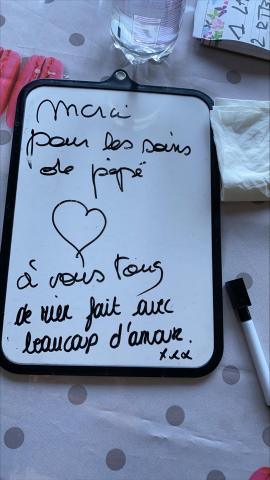 merci
pour les soins
de pépé
à vous tous
de fait avec
beaucoup d'amour.
xxx